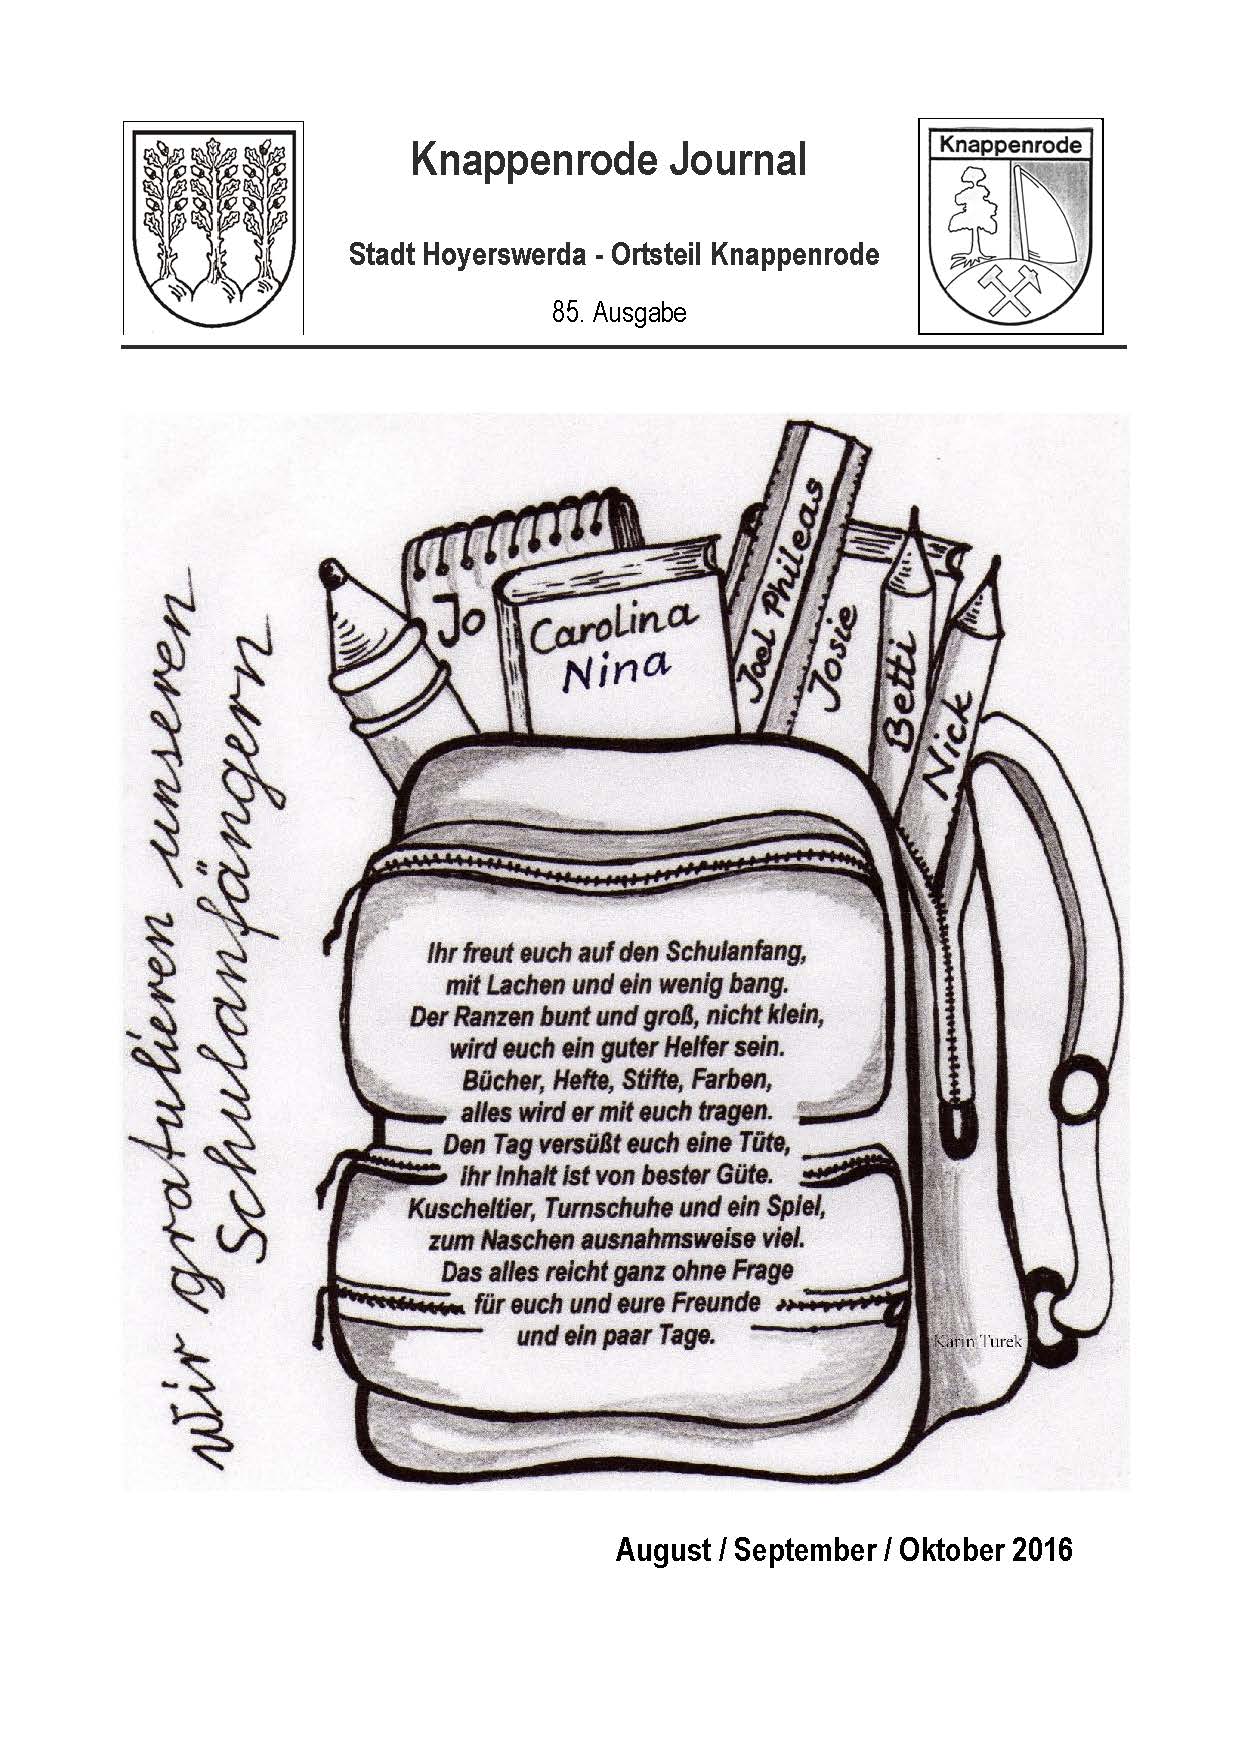 Knappenrode Journal
Knappenrode
Stadt Hoyerswerda - Ortsteil Knappenrode
85. Ausgabe
wir gratulieren unseren
Schulanfängern
Jo
Carolina
Nina
Joel Phileas
Josie
Betti
Nick
Ihr freut euch auf den Schulanfang,
mit Lachen und ein wenig bang.
Der Ranzen bunt und groß, nicht klein,
wird euch ein guter Helfer sein.
Bücher, Hefte, Stifte, Farben,
alles wird er mit euch tragen.
Den Tag versüßt euch eine Tüte,
ihr Inhalt ist von bester Güte.
Kuscheltier, Turnschuhe und ein Spiel,
zum Naschen ausnahmsweise viel.
Das alles reicht ganz ohne Frage
für euch und eure Freunde
und ein paar Tage.
Karin Turek
August / September / Oktober 2016